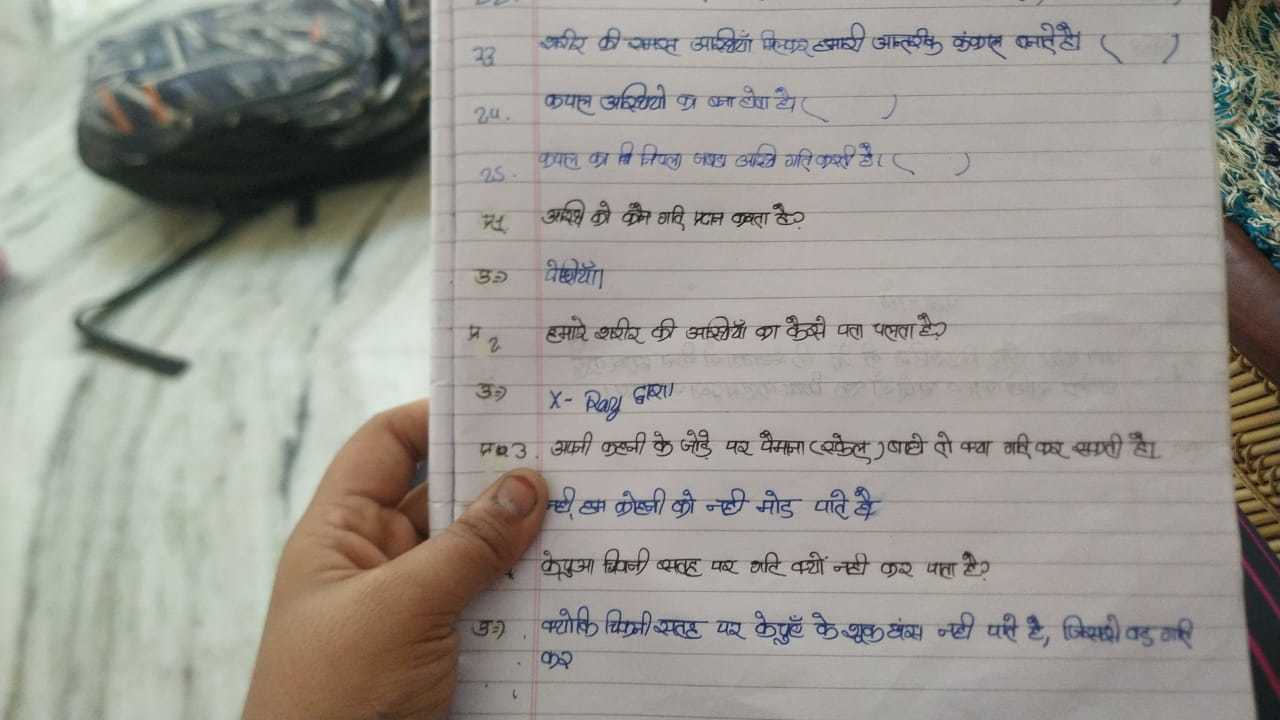 23 शरीर की समस्त अस्थियाँ मिलकर हमारी आन्तरीक कंकाल बनाते है। ( )
24. कपाल अस्थियो का बना होता है। ( )
25. कपाल का नि निचला जबडा अस्थि गति करती है। ( )
प्र1 अस्थि को कौन गति प्रदान करता है?
उ=) पेशीयाँ।
प्र 2 हमारे शरीर की अस्थियाँ का कैसे पता चलता है?
उ=) X- Ray द्वारा
प्र 3. अपनी कहनी के जोड़े पर पैमाना (स्केल) बांधे तो क्या गति कर सकती है।
नही, हम कोहनी को नही मोड पाते है
केचुआ चिकनी सतह पर गति क्यों नही कर पाता है?
उ=) क्योकि चिकनी सतह पर केचुएँ के शूक धंस नही पाते है, जिससे वह गति
कर